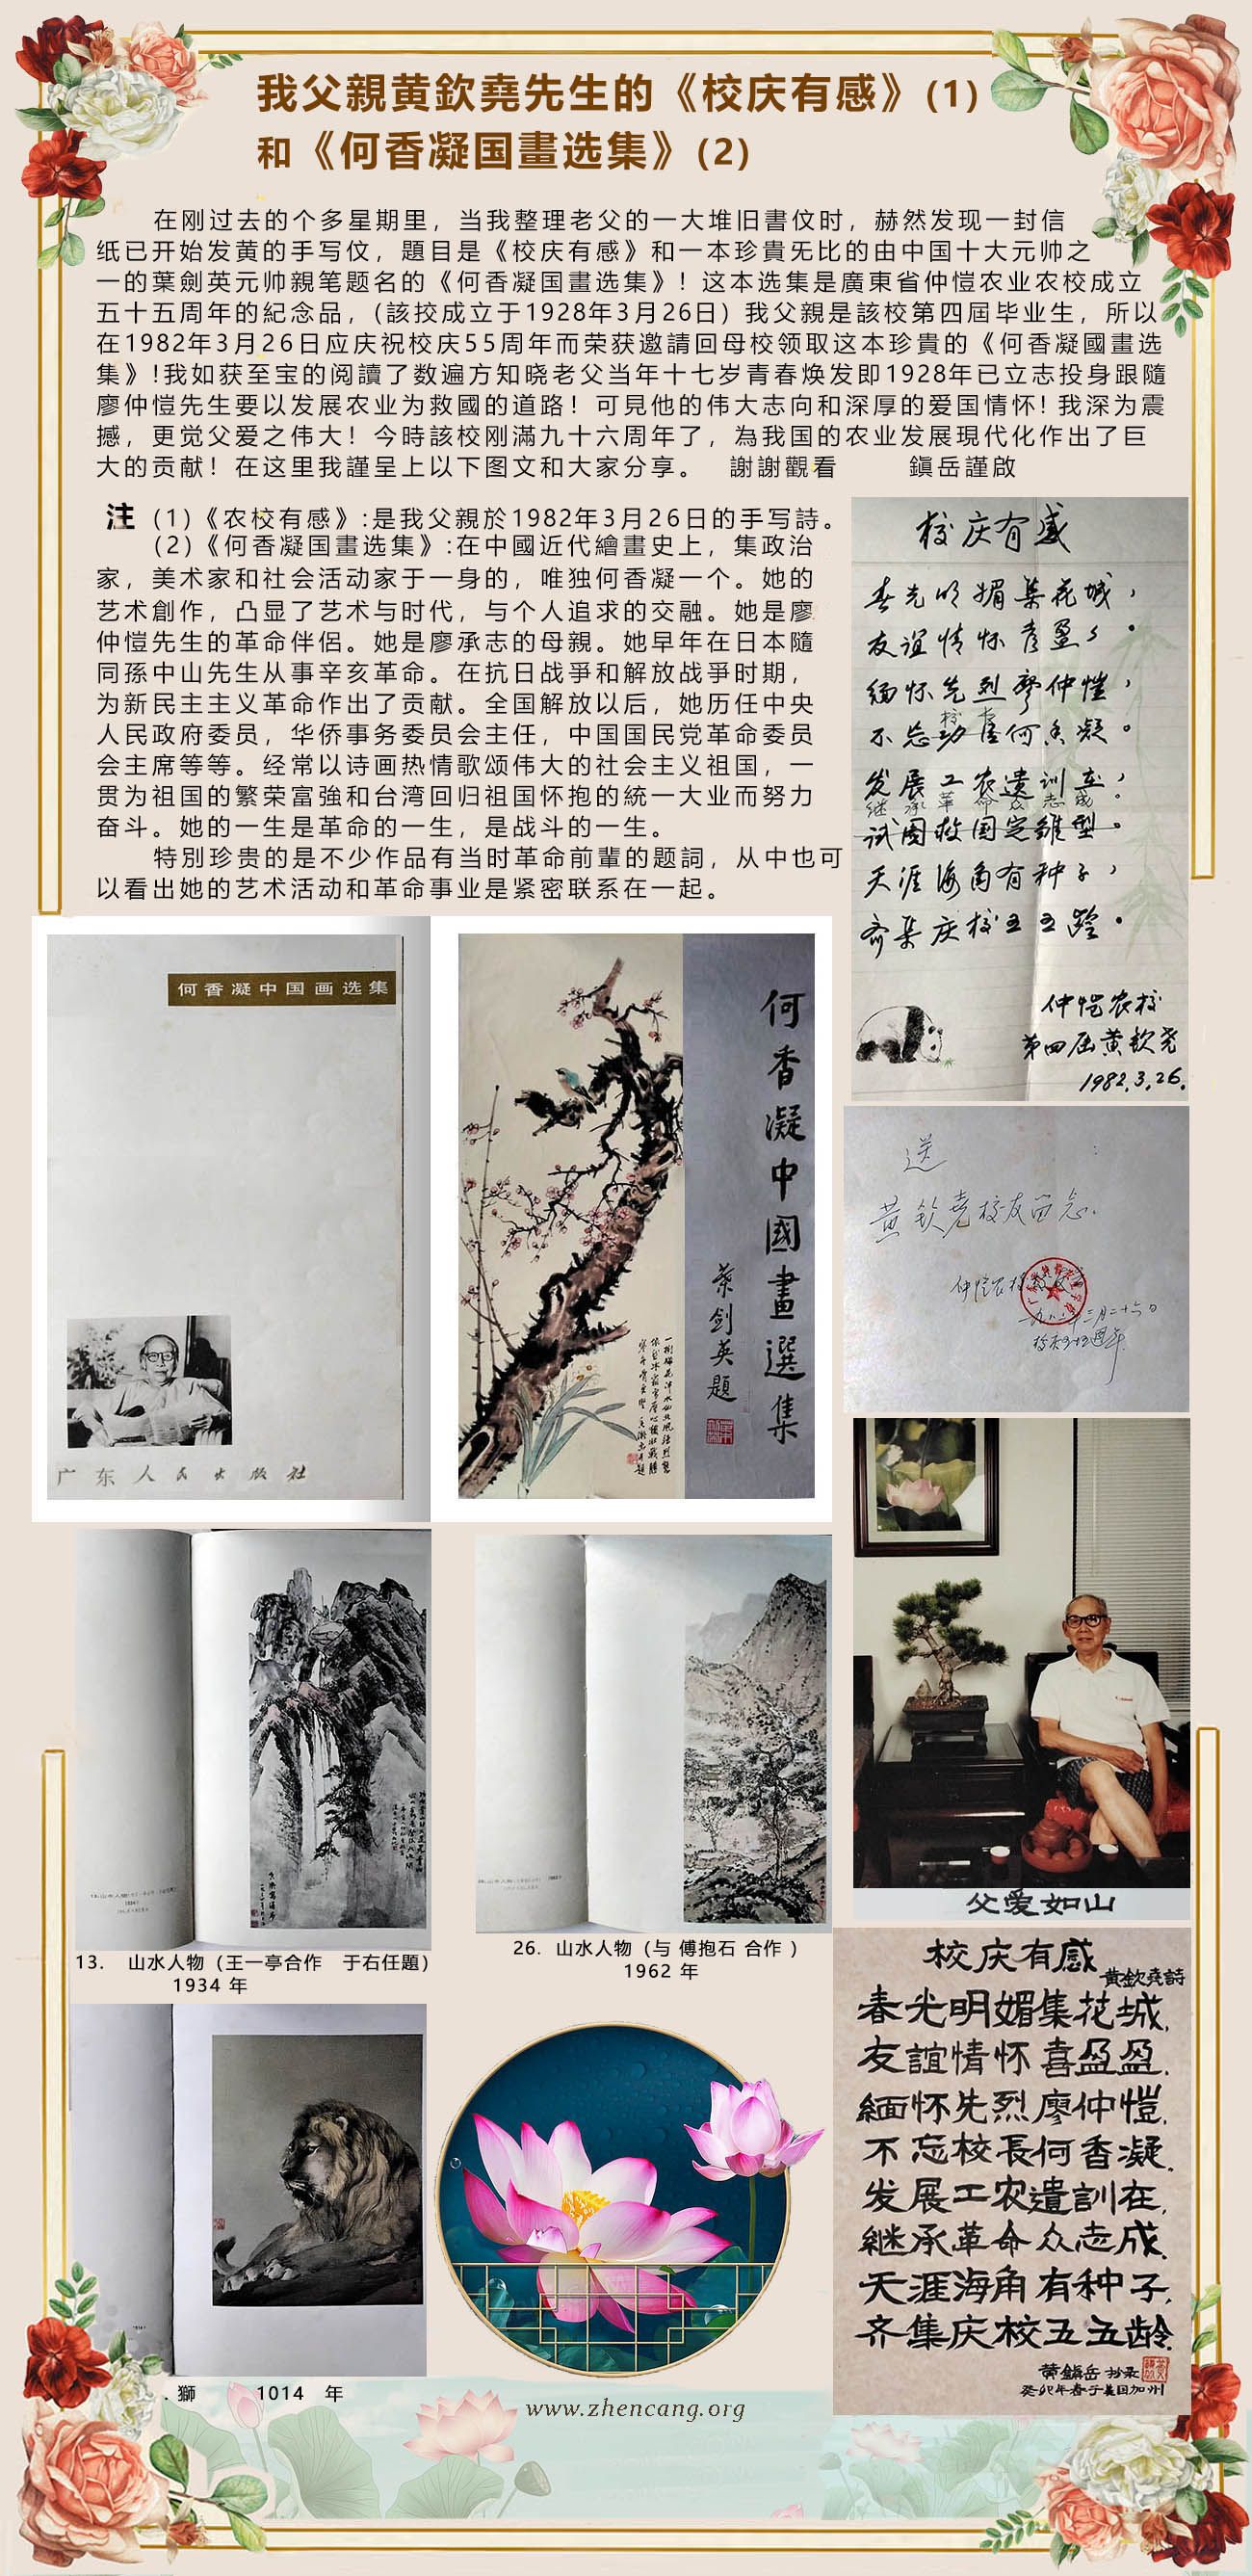 我父親黄欽堯先生的《校庆有感》(1)
和《何香凝国畫选集》(2)
在刚过去的个多星期里，当我整理老父的一大堆旧書仗时，赫然发现一封信
纸已开始发黄的手写仗，題目是《校庆有感》和一本珍貴旡比的由中国十大元帅之
一的葉劍英元帅親笔题名的《何香凝国畫选集》！这本选集是廣東省仲愷农业农校成立
五十五周年的紀念品，(該挍成立于1928年3月26日) 我父親是該校第四屆毕业生，所以
在1982年3月26日应庆祝校庆55周年而荣获邀請回母校领取这本珍貴的《何香凝國畫选
集》!我如获至宝的阅讀了数遍方知晓老父当年十七岁青春焕发即1928年已立志投身跟隨
廖仲愷先生要以发展农业为救國的道路！可見他的伟大志向和深厚的爱国情怀!我深为震
撼，更觉父爱之伟大！今時該校刚滿九十六周年了，為我国的农业发展現代化作出了巨
大的贡献！在这里我謹呈上以下图文和大家分享。 謝謝觀看 鎭岳謹啟
注 (1)《农校有感》:是我父親於1982年3月26日的手写詩。
(2)《何香凝国畫选集》:在中國近代繪畫史上，集政治
家，美术家和社会活动家于一身的，唯独何香凝一个。她的
艺术創作，凸显了艺术与时代，与个人追求的交融。她是廖
仲愷先生的革命伴侣。她是廖承志的母親。她早年在日本隨
同孫中山先生从事辛亥革命。在抗日战爭和解放战爭时期，
为新民主主义革命作出了贡献。全国解放以后，她历任中央
人民政府委员，华侨事务委员会主任，中国国民党革命委员
会主席等等。经常以诗画热情歌颂伟大的社会主义祖国，一
贯为祖国的繁荣富強和台湾回归祖国怀抱的統一大业而努力
奋斗。她的一生是革命的一生，是战斗的一生。
特別珍贵的是不少作品有当时革命前輩的题詞，从中也可
以看出她的艺术活动和革命事业是紧密联系在一起。
校庆有感
春光明媚集花城，
友谊情怀喜盈々。
缅怀先烈廖仲恺，
校长
不忘功臣何香凝。
发展工农遗训在，
继承革命众志成。
试图救国定雏型。
天涯海角有种子，
齐集庆校五五龄。
仲恺农校
第四届黄钦尧
1982.3.26.
送
黄钦尧校友留念.
何香凝中国画选集
广东人民出版社
何香凝中國畫選集
葉剑英題
父爱如山
13. 山水人物（王一亭合作 于右任題）
1934 年
26. 山水人物（与 傅抱石 合作 ）
1962 年
校庆有感
黄欽堯詩
春光明媚集花城,
友誼情怀喜盈盈.
緬怀先烈廖仲愷,
不忘校長何香凝.
发展工农遺訓在,
継承革命众志成.
天涯海角有种子,
齐集庆校五五龄.
黄鎭岳 抄录
癸卯年春于美国加州
. 獅 1014 年
www.zhencang.org